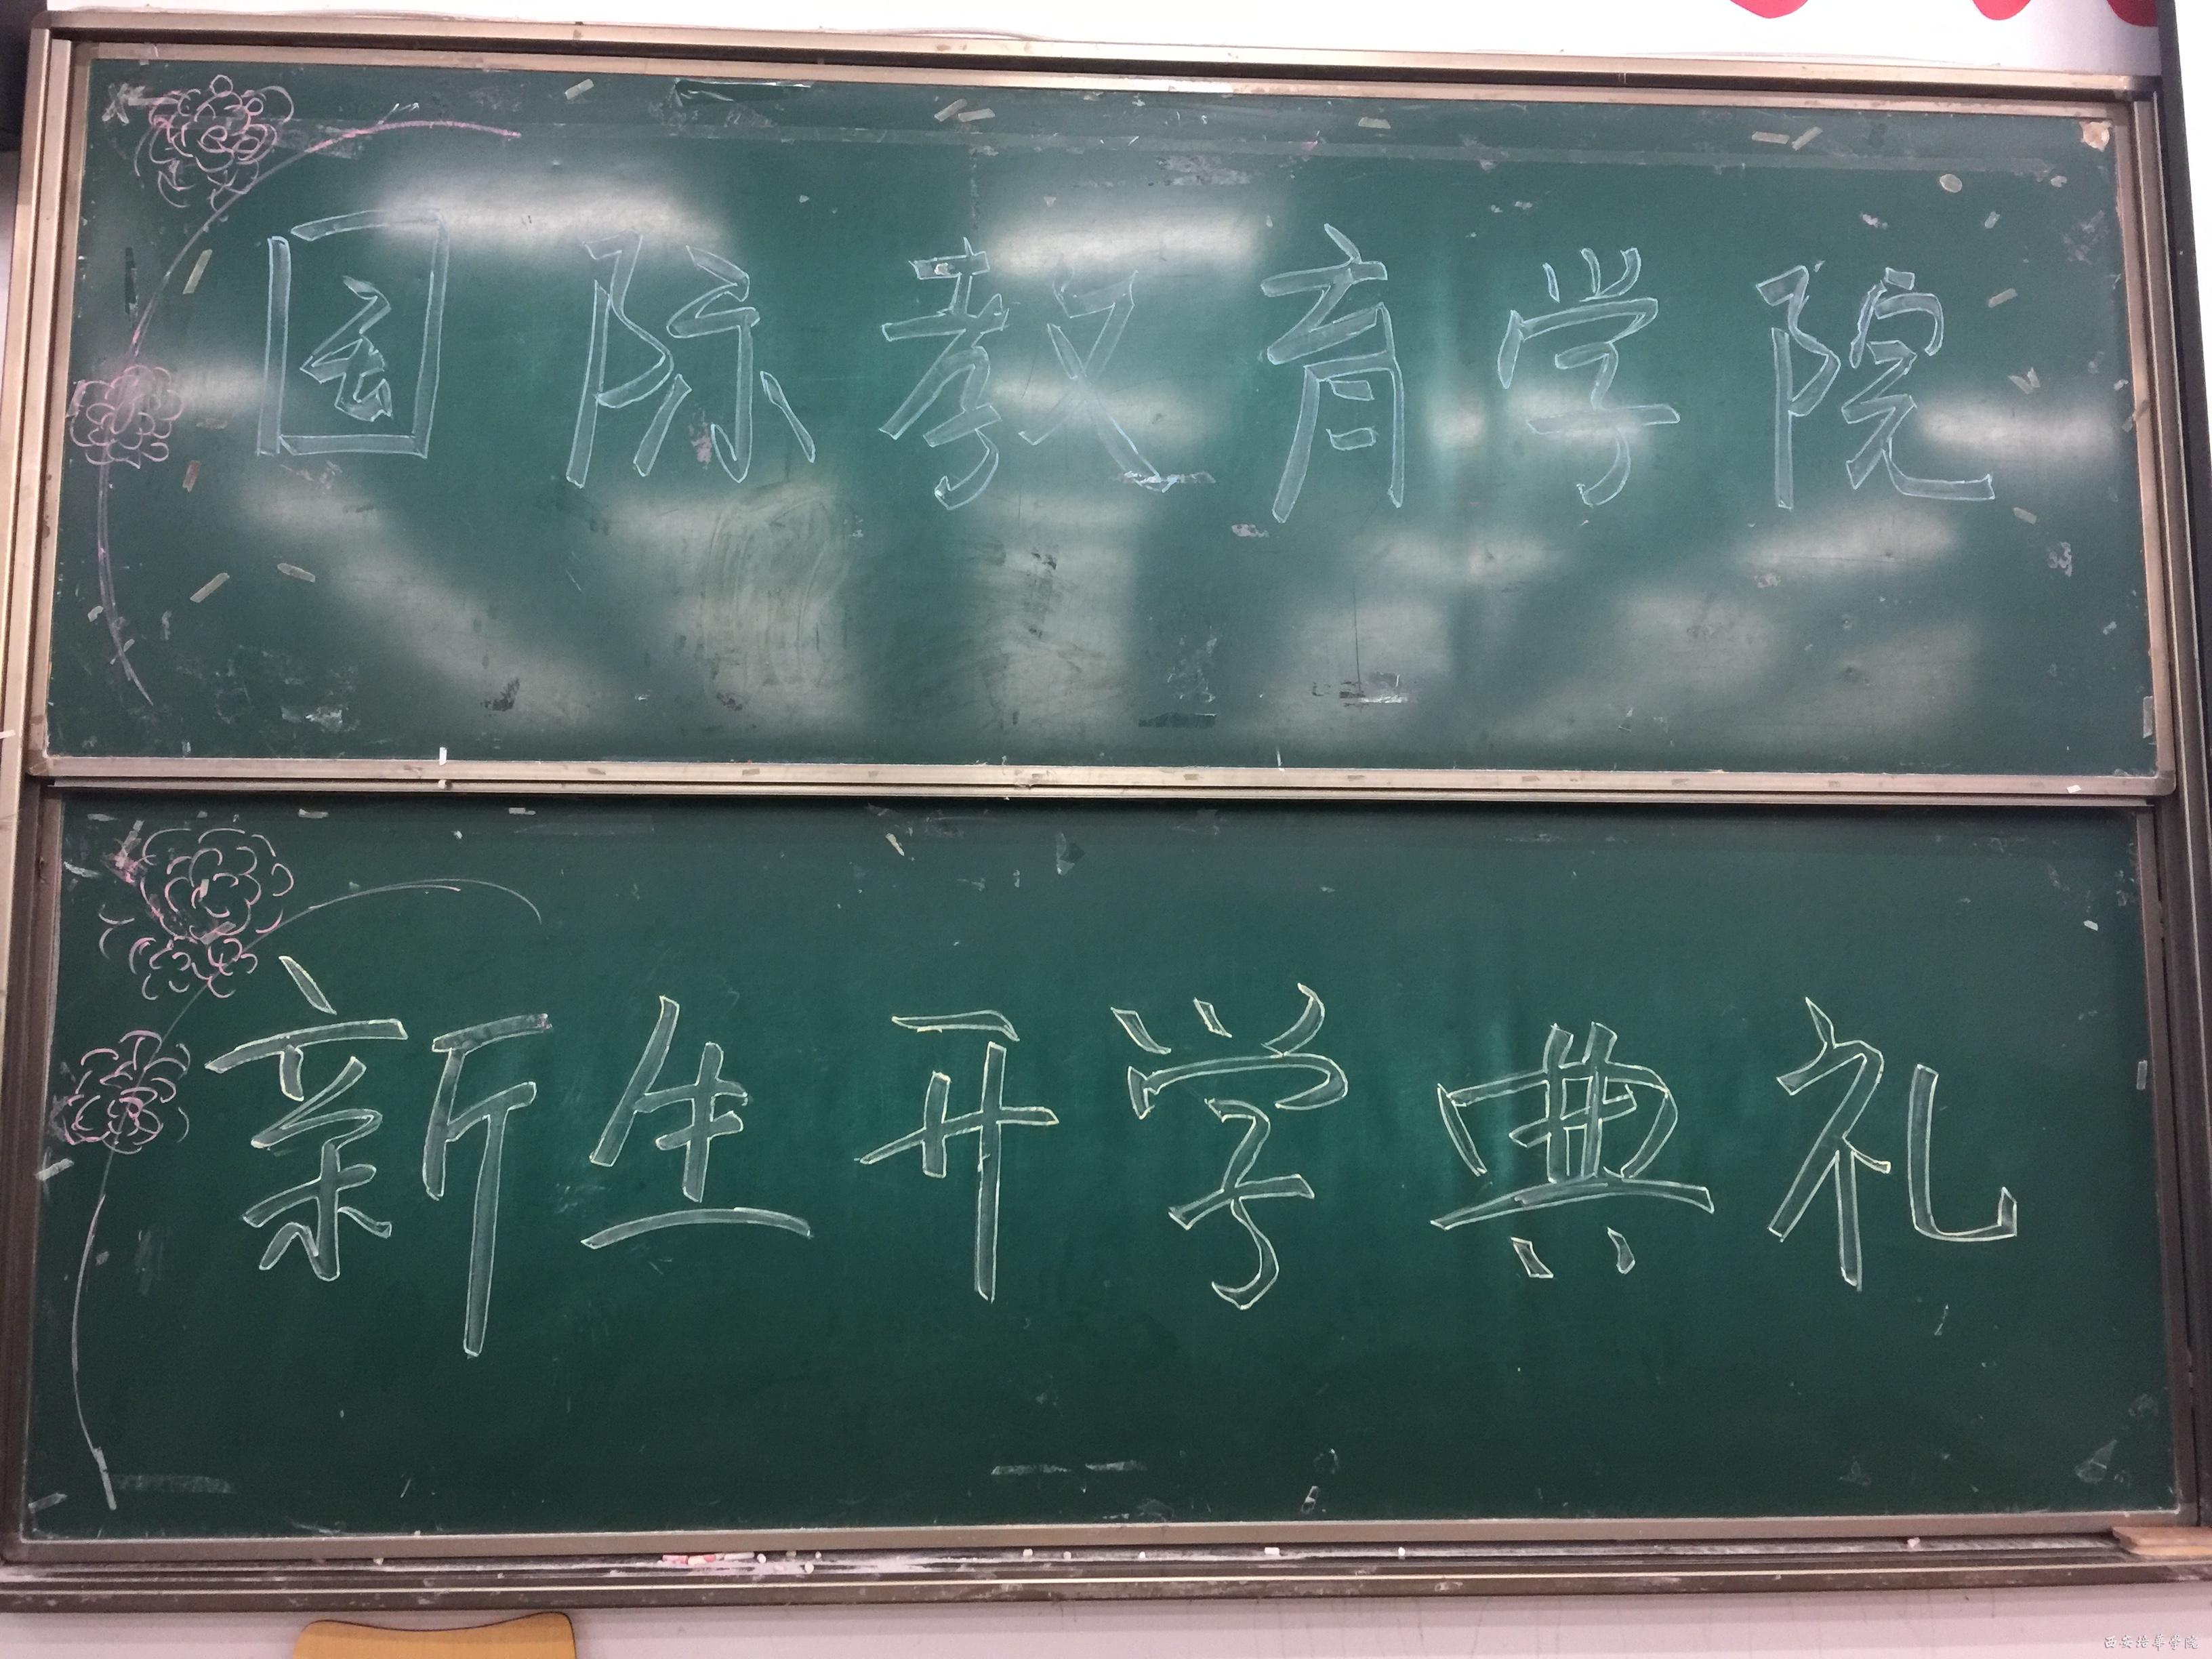 国际教育学院
新生开学典礼
西安培华学院